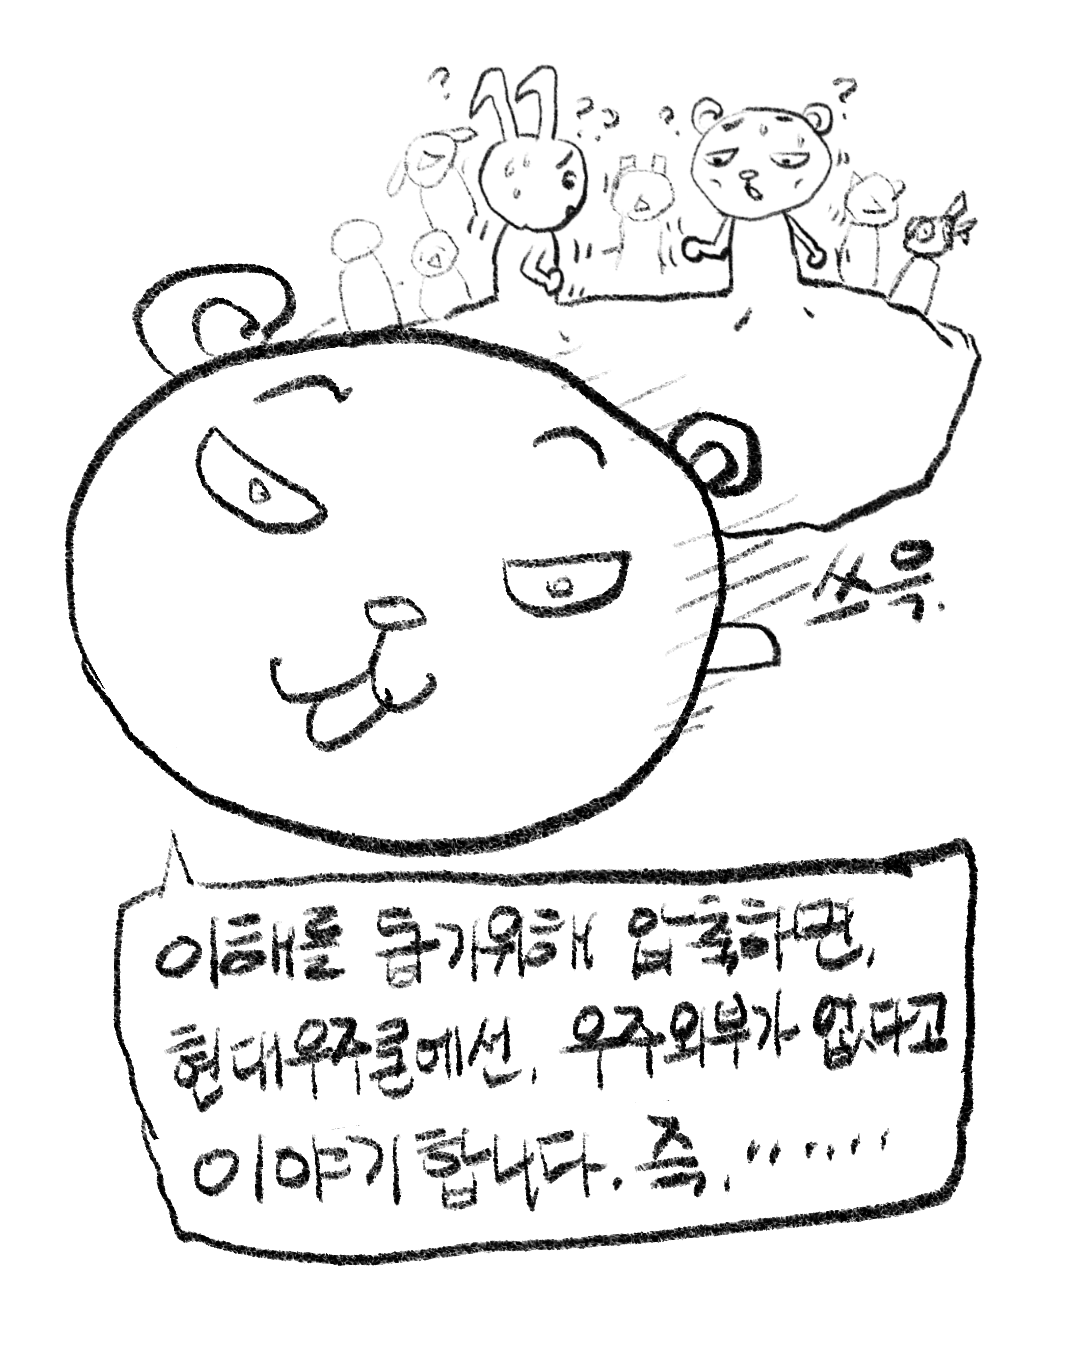 ? ? ? ? ?
쓰윽.
이해를 돕기위해 압축하면,
현대우주론에선, 우주외부가 없다고
이야기합니다. 즉, ......